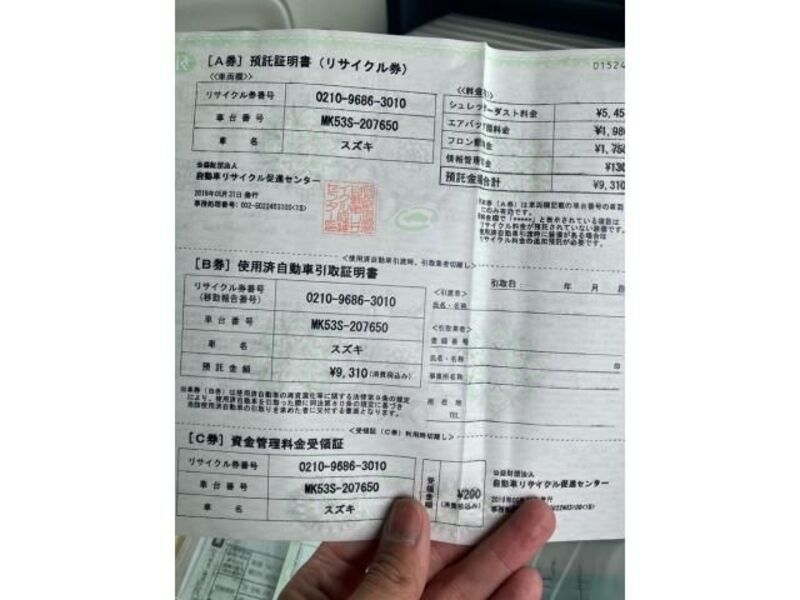 01524
[A券] 預託証明書（リサイクル券）
<<車両欄>>
リサイクル券番号 0210-9686-3010
車台番号 MK53S-207650
車名 スズキ
公益財団法人
自動車リサイクル促進センター
2019年05月31日 発行
<<料金
シュレッダーダスト料金 ¥5,45
エアバッグ類料金 ¥1,98
フロン類料金 ¥1,75
情報管理料金 ¥130
預託金額合計 ¥9,310
<使用済自動車引渡時、引取業者切離し>
[B券] 使用済自動車引取証明書
リサイクル券番号
(移動報告番号) 0210-9686-3010
車台番号 MK53S-207650
車名 スズキ
預託金額 ¥9,310(消費税込み)
引取日: 年 月 日
<引渡者>
氏名・名称
<引取業者>
登録番号
氏名・名称 印
事業所名称
所在地
TEL
<受領証（C券）利用時切離し>
[C券] 資金管理料金受領証
リサイクル券番号 0210-9686-3010
車台番号 MK53S-207650
車名 スズキ
受領金額 ¥290
(消費税込み)
公益財団法人
自動車リサイクル促進センター